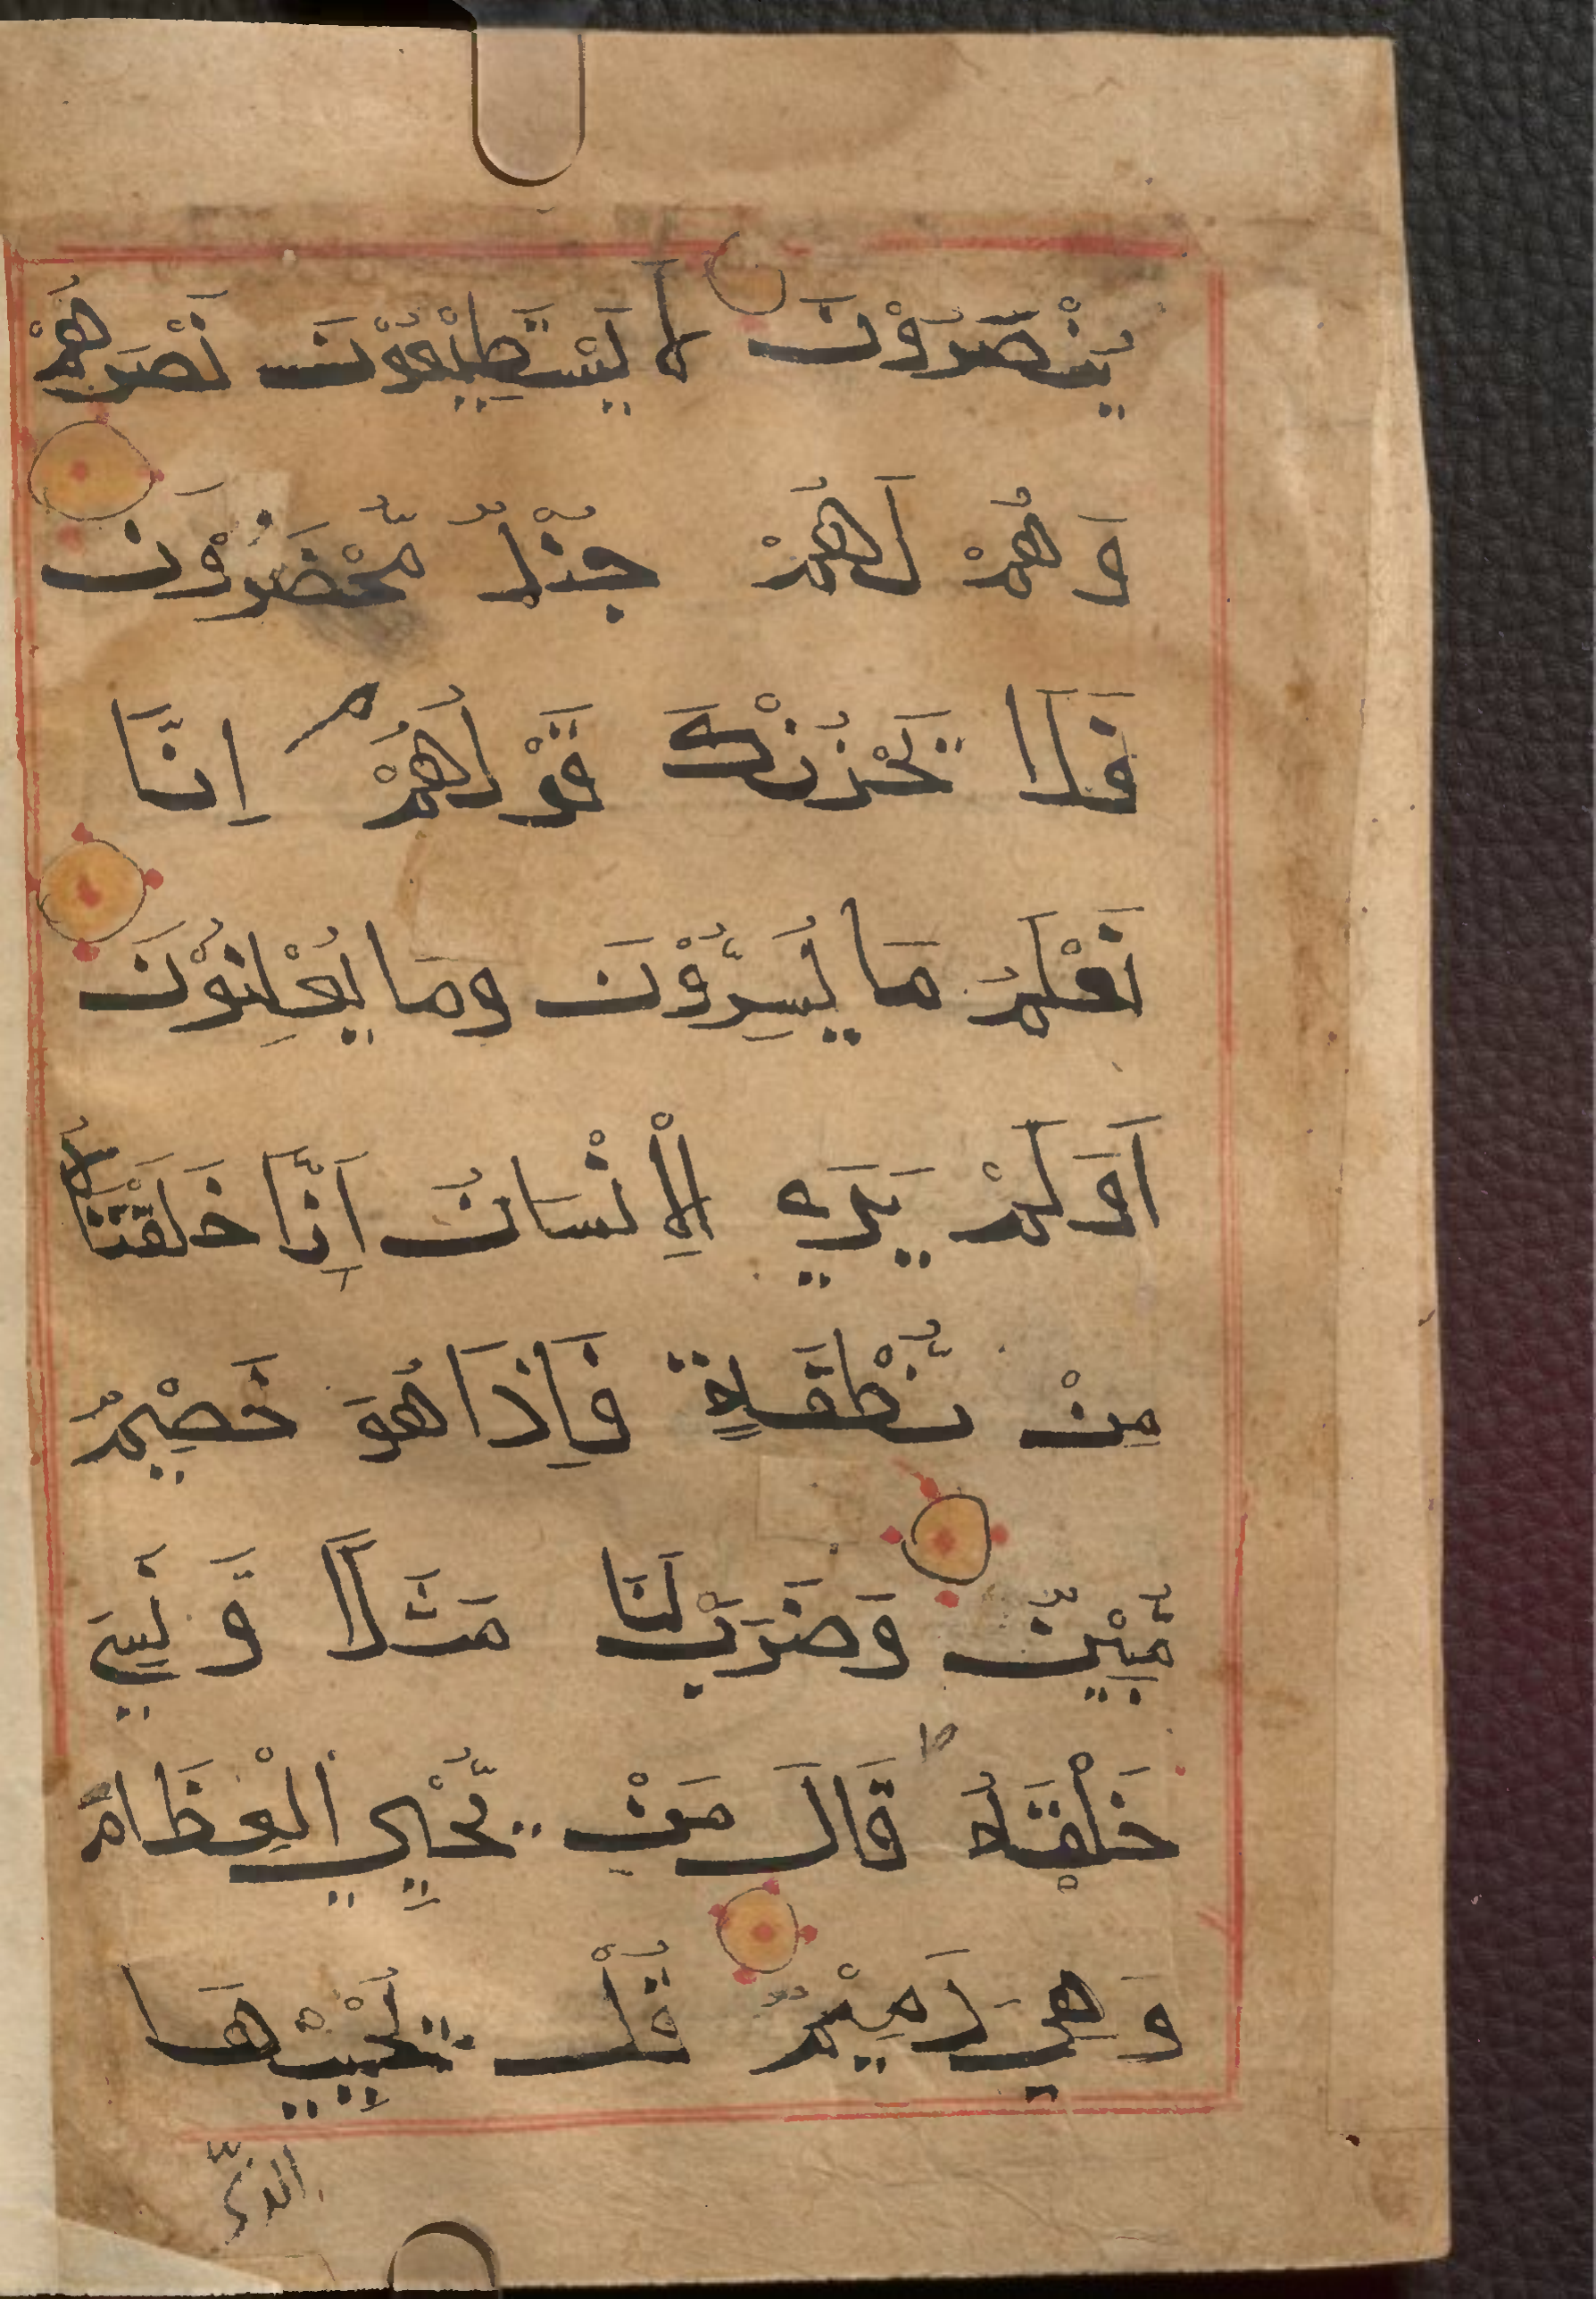 يُنْصَرُوْنَ لَا يَسْتَطِيْعُوْنَ نَصْرَهُمْ
وَهُمْ لَهُمْ جُنْدٌ مُّحْضَرُوْنَ
فَلَا يَحْزُنْكَ قَوْلُهُمْ م اِنَّا
نَعْلَمُ مَا يُسِرُّوْنَ وَمَا يُعْلِنُوْنَ
اَوَلَمْ يَرَي الْاِنْسَانُ اَنَّا خَلَقْنَاهُ
مِنْ نُّطْفَةٍ فَاِذَا هُوَ خَصِيْمٌ
مُّبِيْنٌ وَضَرَبَ لَنَا مَثَلًا وَّنَسِيَ
خَلْقَهُ ط قَالَ مَنْ يُّحْيِي الْعِظَامَ
وَهِيَ رَمِيْمٌ قُلْ يُحْيِيْهَا
الذي